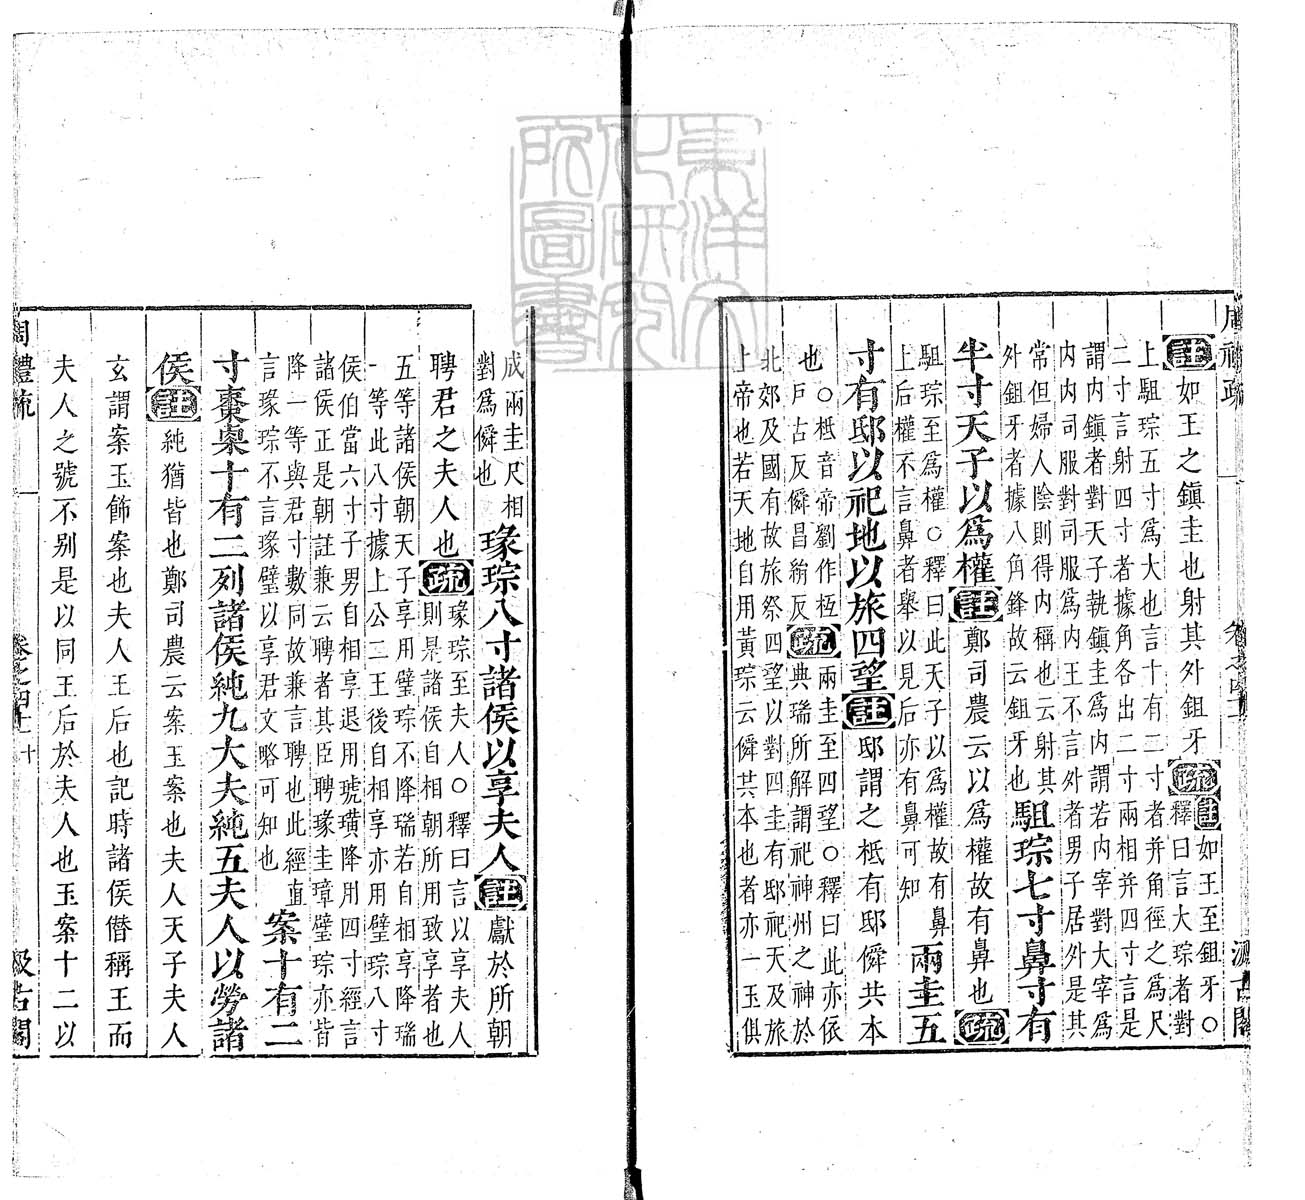 註如王之鎮圭也射其外鉏牙疏註如王至鉏牙○
釋曰言大琮者對
上駔琮五寸爲大也言十有二寸者并角徑之爲尺
二寸言射四寸者據角各出二寸兩相并四寸言是
謂内鎮者對天子執鎮圭爲内謂若内宰對大宰爲
内内司服對司服爲内王不言外者男子居外是其
常但婦人陰則得内稱也云射其
外鉏牙者據八角鋒故云鉏牙也
駔琮七寸鼻寸有
半寸天子以爲權註鄭司農云以爲權故有鼻也疏
駔琮至爲權○釋曰此天子以爲權故有鼻
上后權不言鼻者舉以見后亦有鼻可知
兩圭五
寸有邸以祀地以旅四望註邸謂之柢有邸僢共本
也○柢音帝劉作枑
戶古反僢昌絹反
疏兩圭至四望○釋曰此亦依
典瑞所解謂祀神州之神於
北郊及國有故旅祭四望以對四圭有邸祀天及旅
上帝也若天地自用黃琮云僢共本也者亦一玉俱
成兩圭尺相
對爲僢也
瑑琮八寸諸侯以享夫人註獻於所朝
聘君之夫人也疏瑑琮至夫人○釋曰言以享夫人
則是諸侯自相朝所用致享者也
五等諸侯朝天子享用璧琮不降瑞若自相享降瑞
一等此八寸據上公二王後自相享亦用璧琮八寸
侯伯當六寸子男自相享退用琥璜降用四寸經言
諸侯正是朝註兼云聘者其臣聘瑑圭璋璧琮亦皆
降一等與君寸數同故兼言聘也此經直
言瑑琮不言瑑璧以享君文略可知也
案十有二
寸棗㮚十有二列諸侯純九大夫純五夫人以勞諸
侯註純猶皆也鄭司農云案玉案也夫人天子夫人
玄謂案玉飾案也夫人王后也記時諸侯僭稱王而
夫人之號不别是以同王后於夫人也玉案十二以
周禮疏
卷之四十一
十
汲古閣
東洋文化研究所圖書